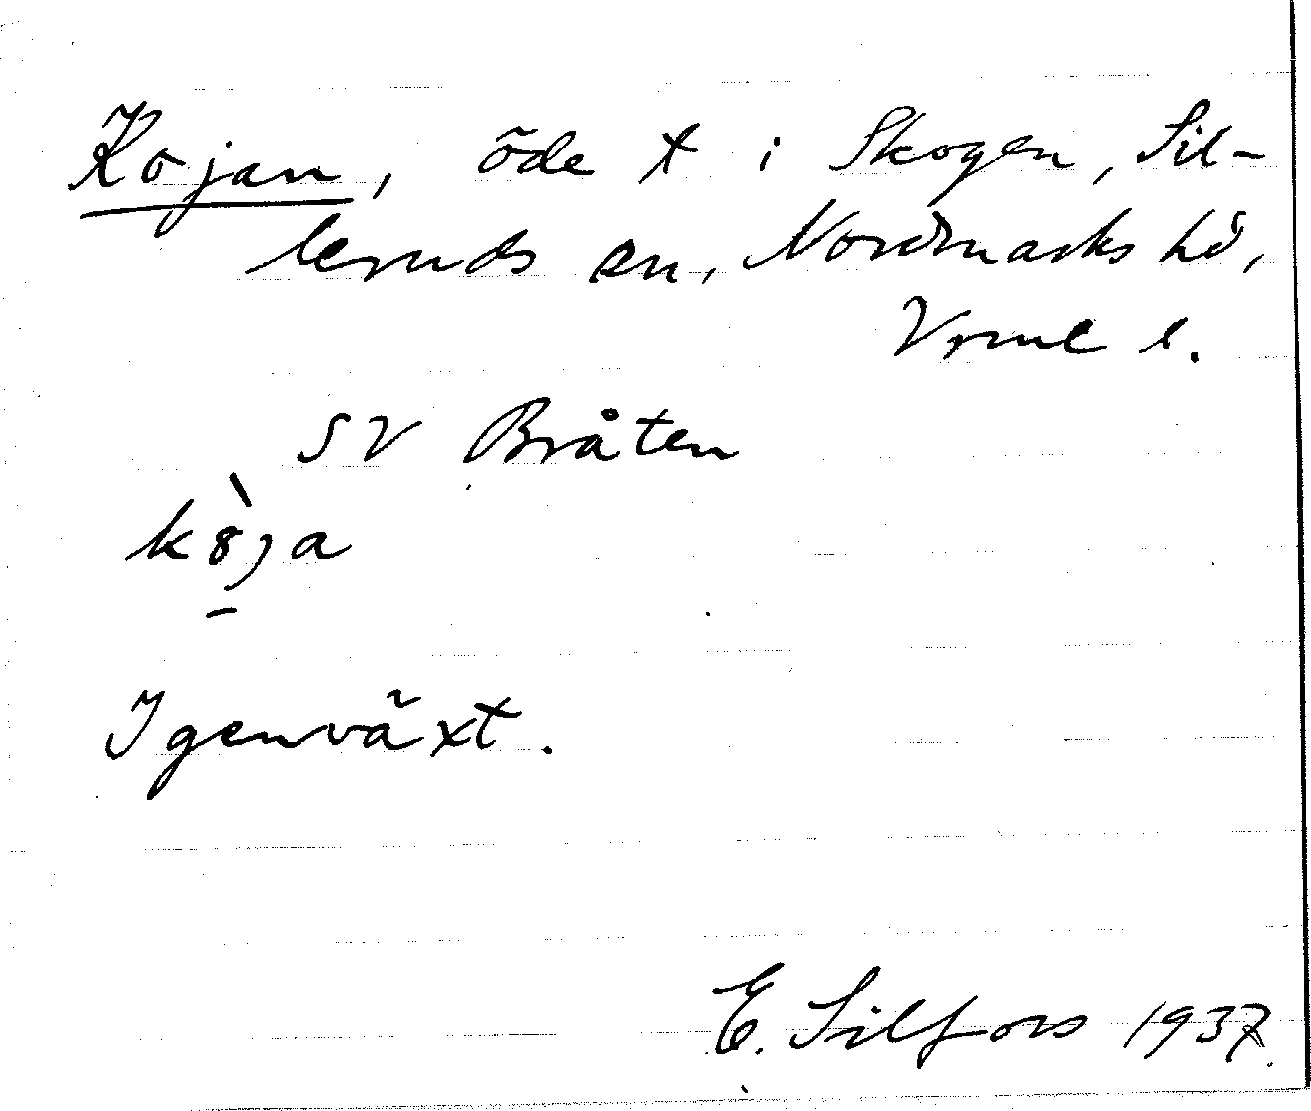 Kojan, öde t i Skogen, Sil-
leruds sn, Nordmarks hd,
Vrml l.
SV Bråten
kȣ̀ja
Igenväxt.
E. Silfors 1937.